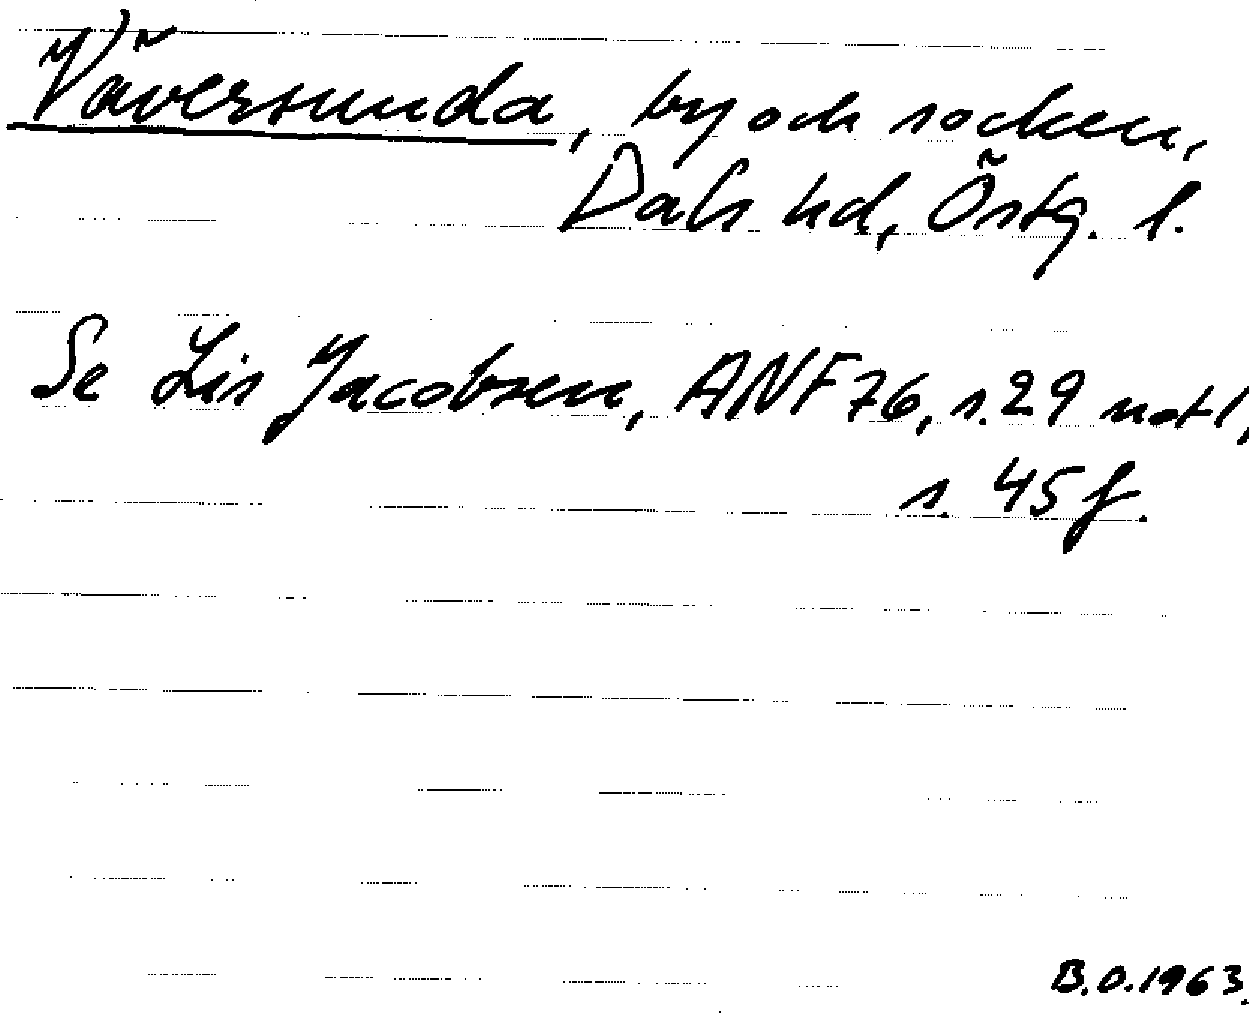 Väversunda, by och socken,
Dals hd, Östg. l.
Se Lis Jacobsen, ANF 76, s. 29 not 1,
s. 45 f.
B.O. 1963.